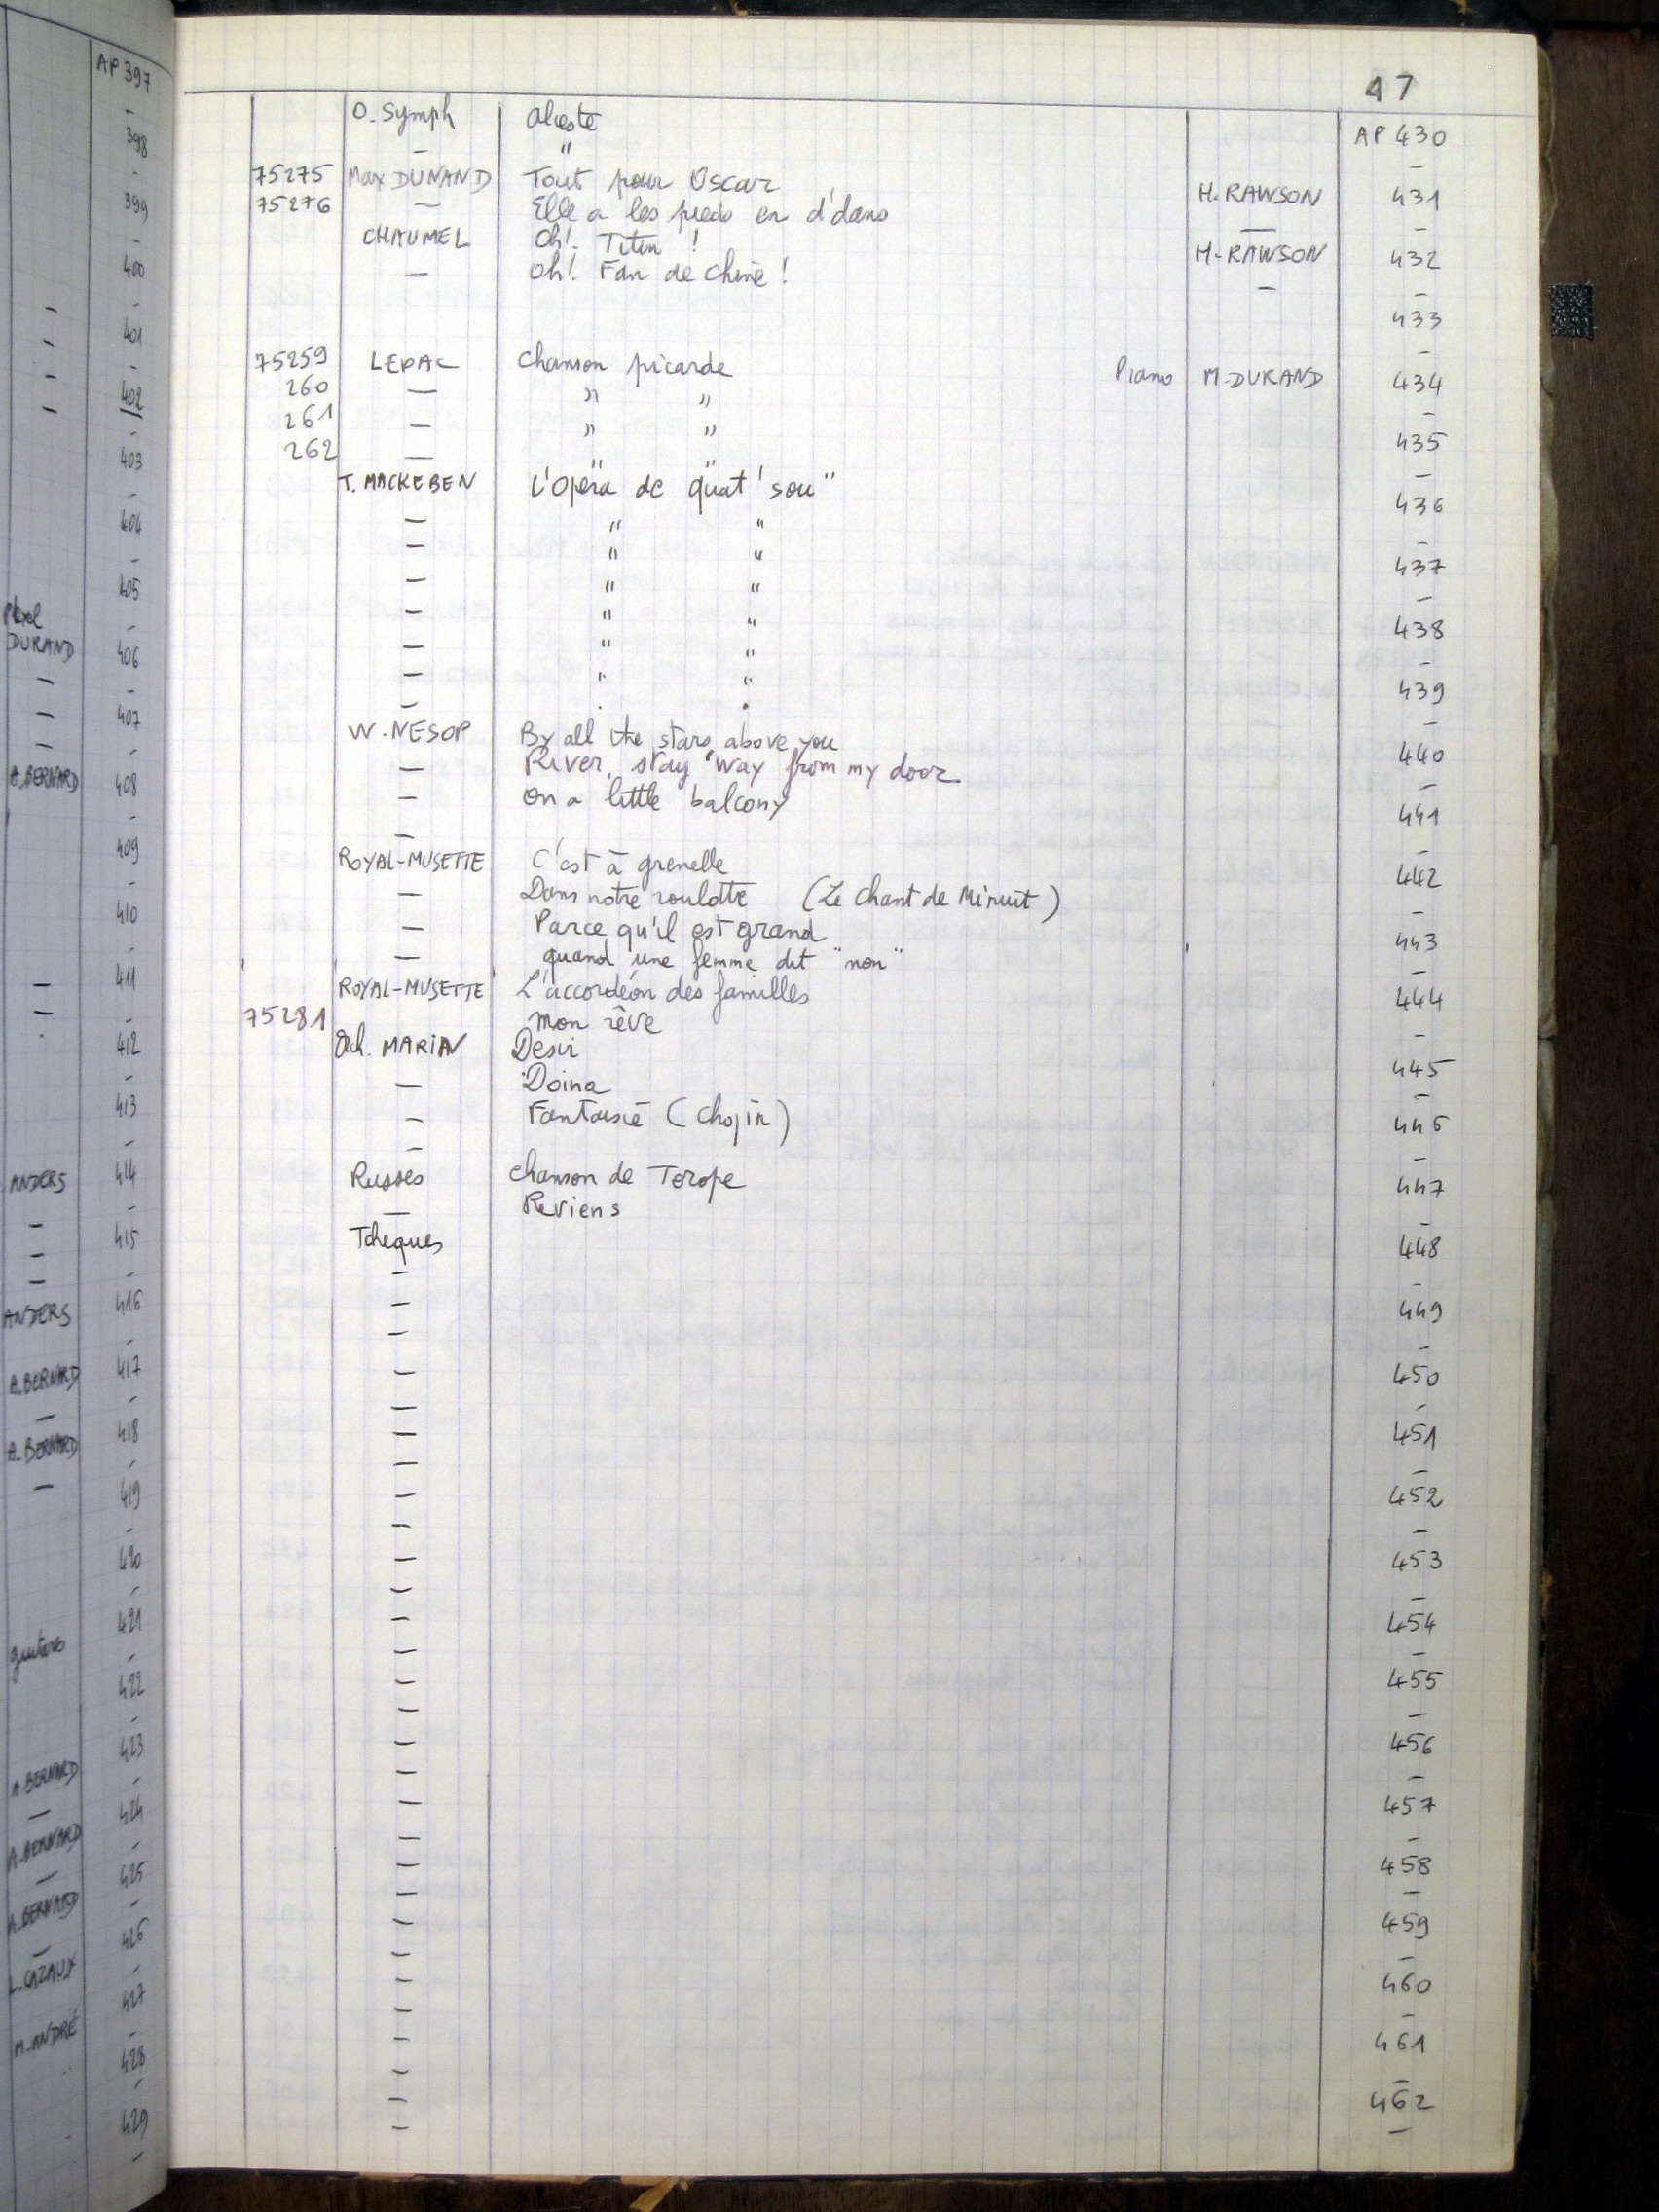 AP 397
–
398
–
399
–
400
–
– 401
–
– 402
–
403
–
404
–
405
–
DURAND 406
– –
– 407
– –
A. BERNARD 408
–
409
–
410
–
– 411
– –
412
–
413
–
ANDERS 414
– –
– 415
– –
ANDERS 416
–
A. BERNARD 417
– –
A. BERNARD 418
– –
419
–
420
–
guitares 421
–
422
–
423
A. BERNARD –
– 424
A. BERNARD –
– 425
A. BERNARD –
– 426
L. CAZAUX –
427
M. ANDRÉ –
428
–
429
–
47
O. Symph Alceste AP 430
– " –
75275 Max DUNAND Tout pour Oscar H. RAWSON 431
75276 – Elle a les pieds en d'dans – –
CHAUMEL Oh! Titin ! H. RAWSON 432
– Oh! Fan de chine ! – –
433
–
75259 LEDAC Chanson picarde Piano M. DURAND 434
260 – " " –
261 – " " 435
262 – " " –
T. MACKEBEN L'Opéra de quat'sou" 436
– " " –
– " " 437
– " " –
– " " 438
– " " –
– " " 439
– " " –
W. NESOP By all the stars above you 440
– River, stay 'way from my door –
– On a little balcony 441
– –
ROYAL-MUSETTE C'est à grenelle 442
– Dans notre roulotte (Le Chant de Minuit) –
– Parce qu'il est grand 443
– quand une femme dit "non" –
ROYAL-MUSETTE L'accordéon des familles 444
75281 mon rêve –
Och. MARIN Desir 445
– Doina –
– Fantaisie (Chopin) 446
– –
Russes chanson de Torope 447
– Reviens –
Tcheques 448
– –
– 449
– –
– 450
– –
– 451
– –
– 452
– –
– 453
– –
– 454
– –
– 455
– –
– 456
– –
– 457
– –
– 458
– –
– 459
– –
– 460
– –
– 461
– –
– 462
– –